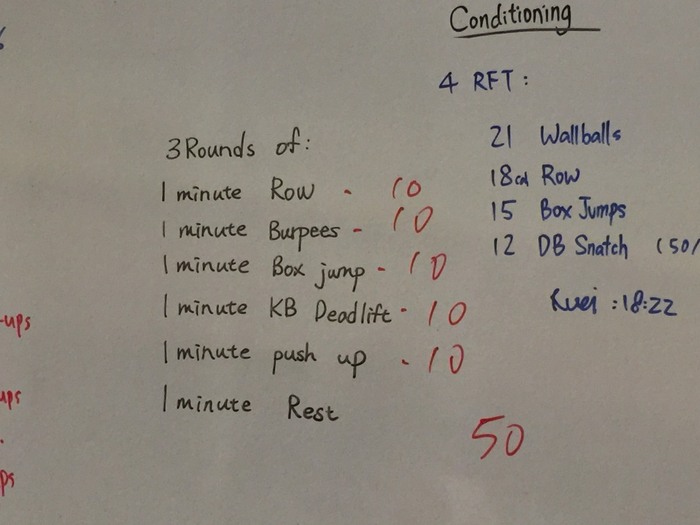 3 Rounds of:
1 minute Row - 10
1 minute Burpees - 10
1 minute Box jump - 10
1 minute KB Deadlift - 10
1 minute push up - 10
1 minute Rest
50
Conditioning
4 RFT :
21 Wallballs
18 cal Row
15 Box Jumps
12 DB Snatch (50/
Kuei : 18:22
-ups
ups
ps